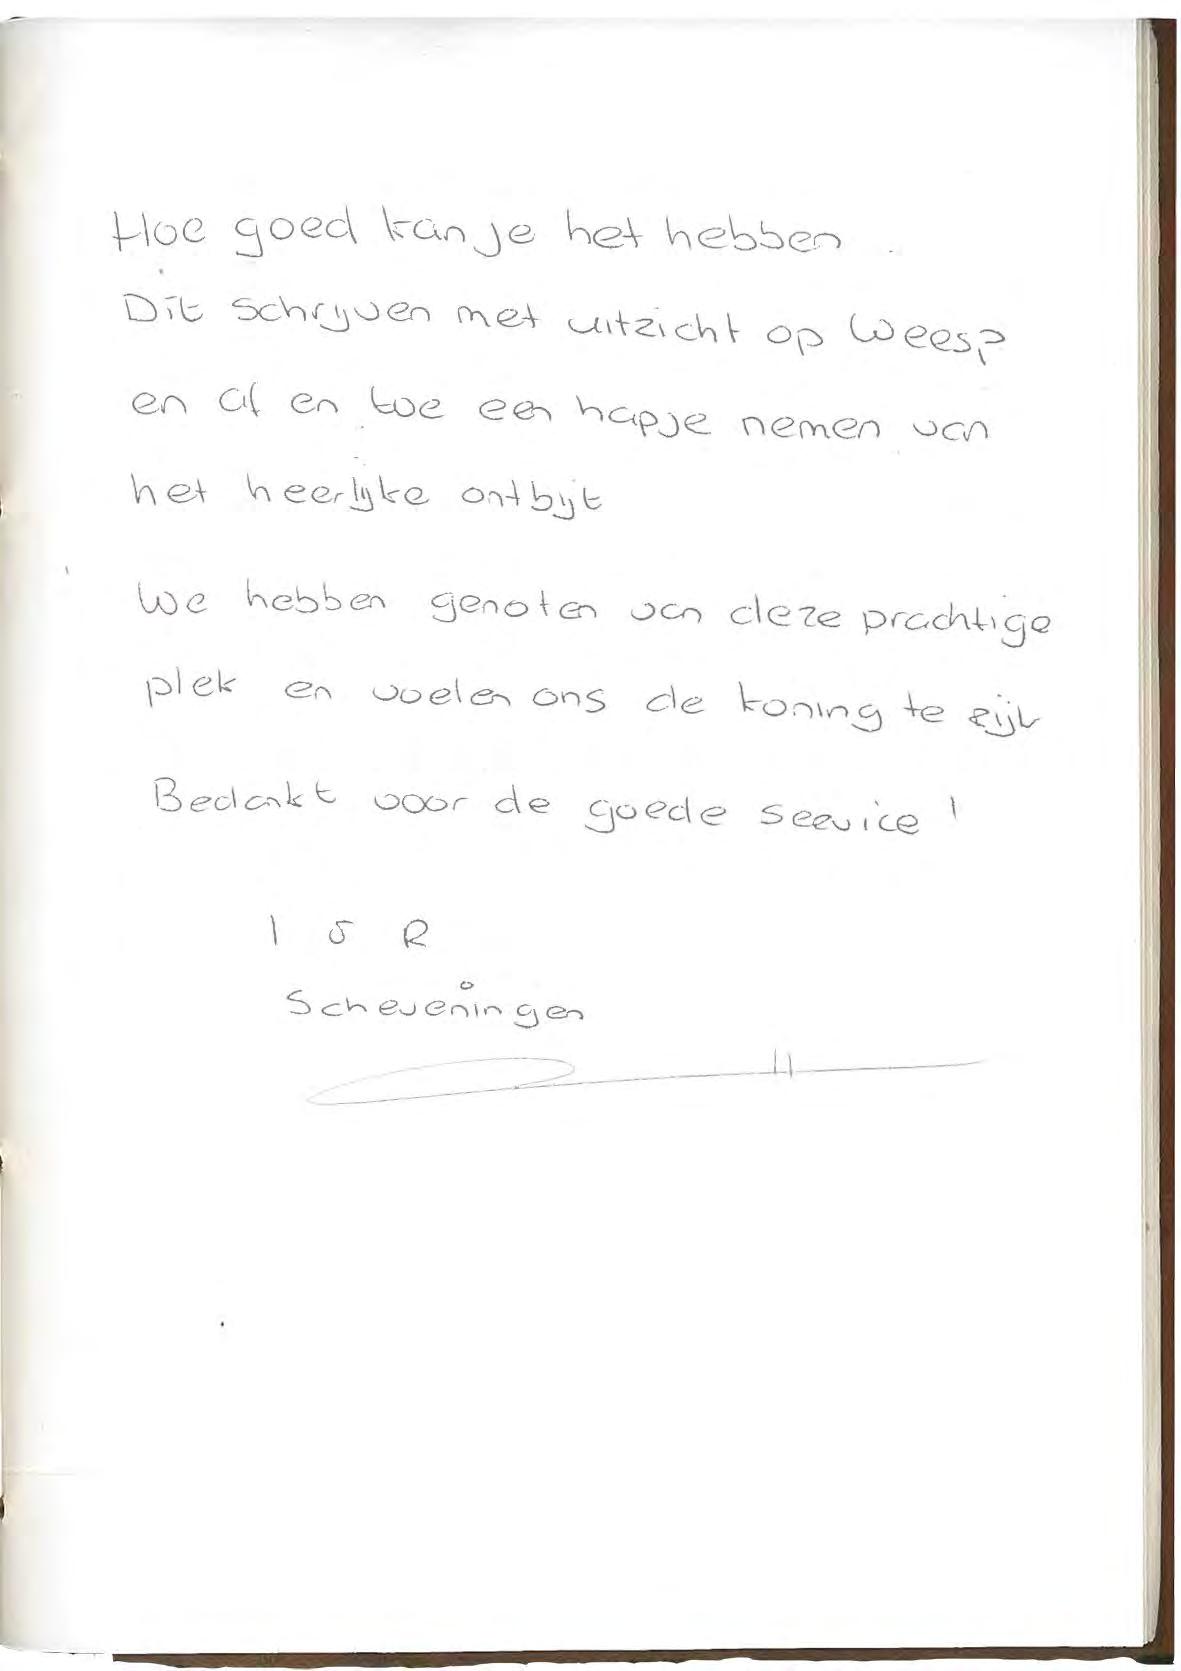 Hoe goed kan je het hebben.
Dit schrijven met uitzicht op Weesp
en af en toe een hapje nemen van
het heerlijke ontbijt
We hebben genoten van deze prachtige
plek en voelen ons de koning te rijk
Bedankt voor de goede service!
Scheveningen